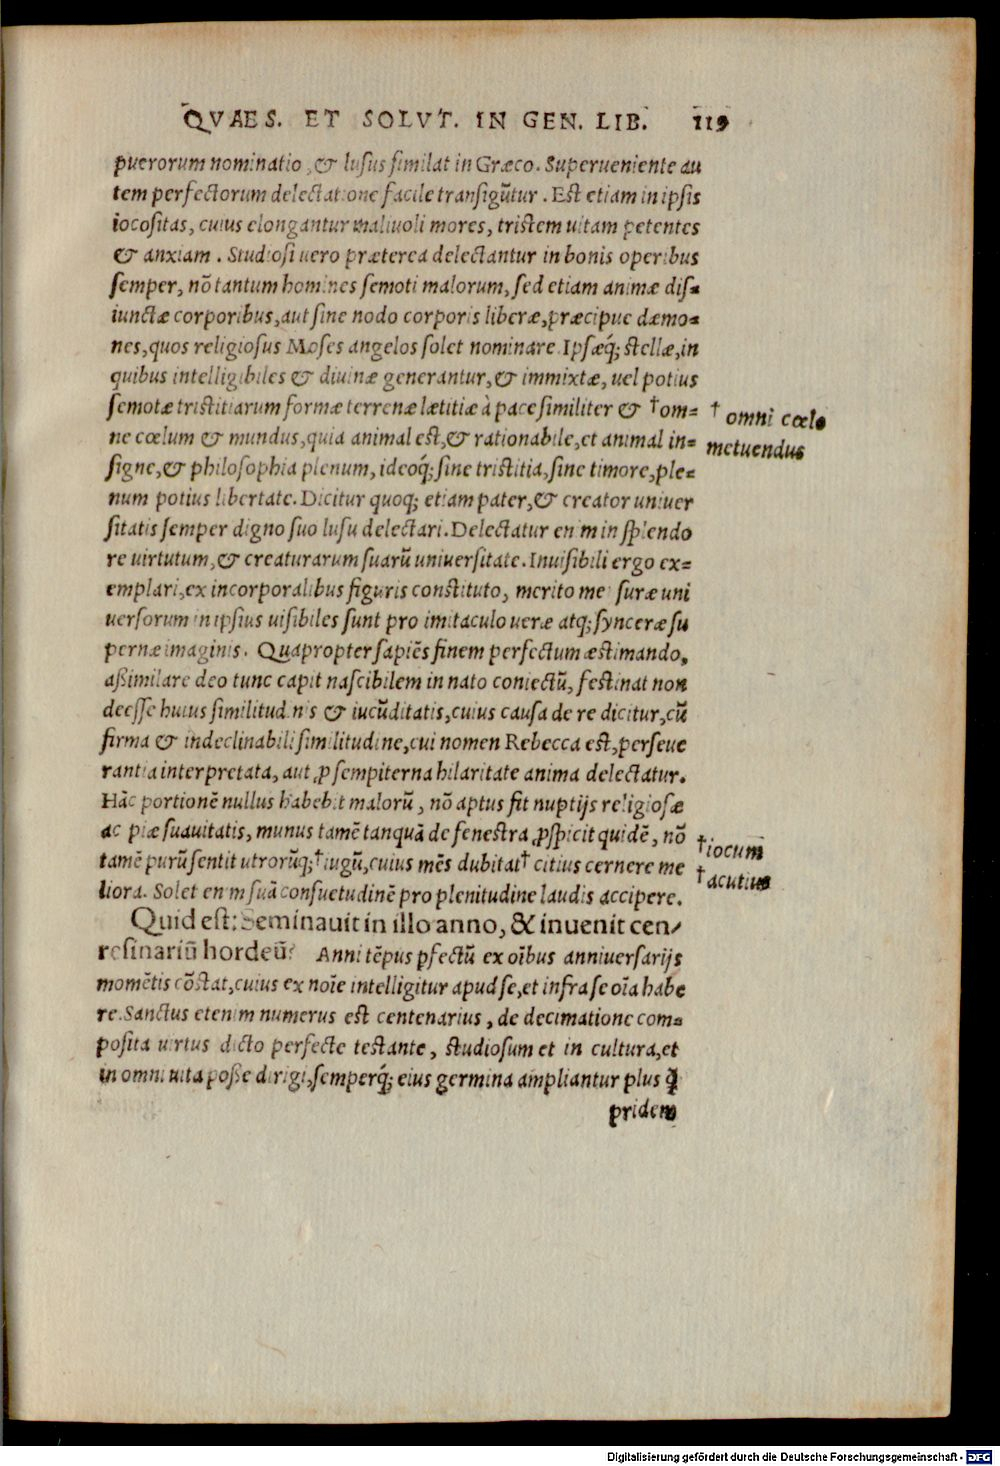 QVAES. ET SOLVT. IN GEN. LIB. 119
puerorum nominatio, & lusus similat in Græco. Superueniente au
tem perfectorum delectatione facile transigūtur. Est etiam in ipsis
iocositas, cuius elongantur maliuoli mores, tristem uitam petentes
& anxiam. Studiosi uero præterea delectantur in bonis operibus
semper, nō tantum homines semoti malorum, sed etiam animæ dis=
iunctæ corporibus, aut sine nodo corporis liberæ, præcipue dæmo=
nes, quos religiosus Moses angelos solet nominare. Ipsæq́; stellæ, in
quibus intelligibiles & diuinæ generantur, & immixtæ, uel potius
semotæ tristitiarum formæ terrenæ lætitiæ à pace similiter & †om=
ne cœlum & mundus, quia animal est, & rationabile, et animal in=
signe, & philosophia plenum, ideoq́; sine tristitia, sine timore, ple=
num potius libertate. Dicitur quoq; etiam pater, & creator uniuer
sitatis semper digno suo lusu delectari. Delectatur enim in splendo
re uirtutum, & creaturarum suarū uniuersitate. Inuisibili ergo ex=
emplari, ex incorporalibus figuris constituto, merito mensuræ uni
uersorum in ipsius uisibiles sunt pro imitaculo ueræ atq; synceræ su
pernæ imaginis. Quapropter sapiēs finem perfectum æstimando,
aßimilare deo tunc capit nascibilem in nato coniectū, festinat non
deesse huius similitudinis & iucūditatis, cuius causa de re dicitur, cū
firma & indeclinabili similitudine, cui nomen Rebecca est, perseue
rantia interpretata, aut ꝓ sempiterna hilaritate anima delectatur.
Hāc portionē nullus habebit malorū, nō aptus fit nuptijs religiosæ
ac piæ suauitatis, munus tamē tanquā de fenestra ꝓspicit quidē, nō
tamē purū sentit utrorūq; †iugū, cuius mēs dubitat† citius cernere me
liora. Solet enim suā consuetudinē pro plenitudine laudis accipere.
Quid est: Seminauit in illo anno, & inuenit cen/
tesinariū hordeū? Anni tēpus pfectū ex oībus anniuersarijs
momētis cōstat, cuius ex noīe intelligitur apud se, et infra se oīa habe
re. Sanctus etenim numerus est centenarius, de decimatione com=
posita uirtus dicto perfecte testante, studiosum et in cultura, et
in omni uita poße dirigi, semperq́; eius germina ampliantur plus ꝗ̄
pridem
† omni cœlo
metuendus
†iocum
†acutius
Digitalisierung gefördert durch die Deutsche Forschungsgemeinschaft - DFG